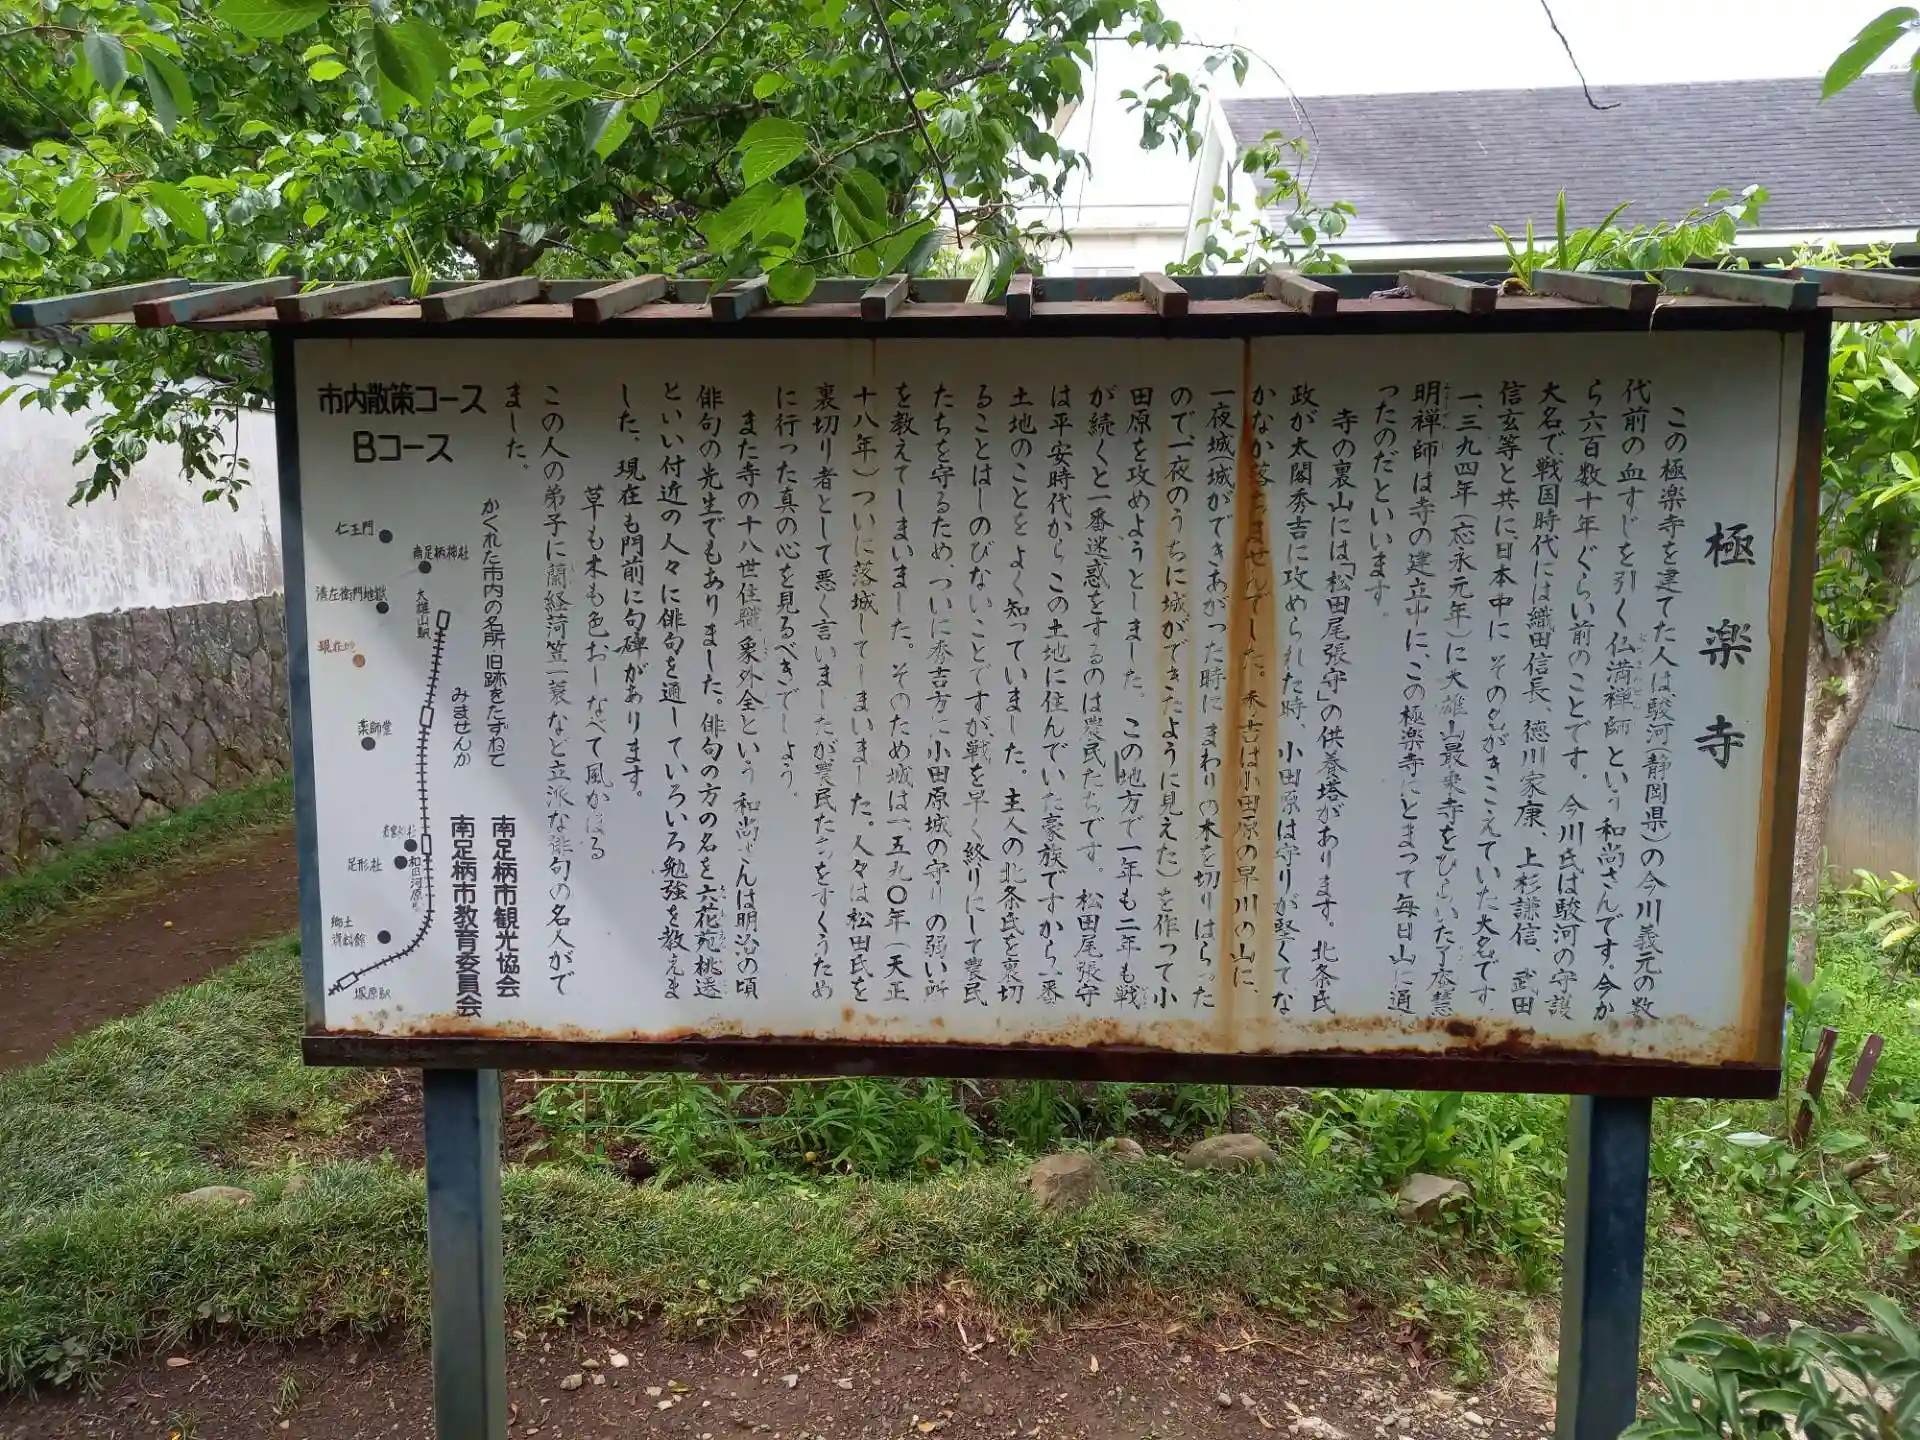 極楽寺
この極楽寺を建てた人は駿河(静岡県)の今川義元の数
代前の血すじを引く仏満禅師という和尚さんです。今か
ら六百数十年ぐらい前のことです。今川氏は駿河の守護
大名で、戦国時代には織田信長、徳川家康、上杉謙信、武田
信玄等と共に、日本中にその名がきこえていた大名です。
一、三九四年(応永元年)に大雄山最乗寺をひらいた了庵慧
明禅師は寺の建立中に、この極楽寺にとまって毎日山に通
ったのだといいます。
寺の裏山には「松田尾張守」の供養塔があります。北条氏
政が太閤秀吉に攻められた時、小田原は守りが堅くてな
かなか落ちませんでした。秀吉は小田原の早川の山に、
一夜城城ができあがった時にまわりの木を切りはらった
ので、一夜のうちに城ができたように見えた)を作って小
田原を攻めようとしました。この地方で一年も二年も戦
が続くと一番迷惑をするのは農民たちです。松田尾張守
は平安時代からこの土地に住んでいた豪族ですから一番
土地のことをよく知っていました。主人の北条氏を裏切
ることはしのびないことですが、戦を早く終りにして農民
たちを守るため、ついに秀吉方に小田原城の守りの弱い所
を教えてしまいました。そのため城は一、五九〇年(天正
十八年)ついに落城してしまいました。人々は松田氏を
裏切り者として悪く言いましたが農民たちをすくうため
に行った真の心を見るべきでしょう。
また寺の十八世住職象外全という和尚さんは明治の頃
俳句の先生でもありました。俳句の方の名を六花苑桃遷
といい付近の人々に俳句を通していろいろ勉強を教えま
した、現在も門前に句碑があります。
草も木も色おしなべて風かほる
この人の弟子に蘭経、荷笠、一蓑など立派な俳句の名人がで
ました。
かくれた市内の名所 旧跡をたずねて
みませんか
南足柄市観光協会
南足柄市教育委員会
市内散策コース
Bコース
仁王門
南足柄神社
清左衛門地獄
大雄山駅
現在地
薬師堂
足形社
和田河原
郷土
資料館
塚原駅